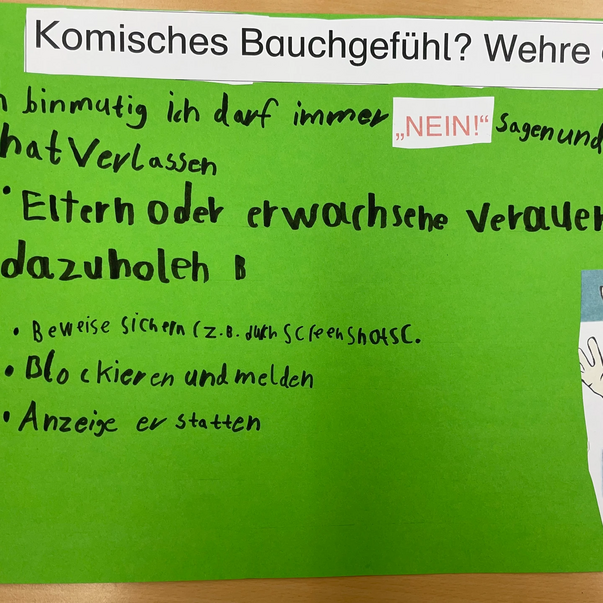 Komisches Bauchgefühl? Wehre
binmutig ich darf immer „NEIN!“ sagen und
hat Verlassen
• Eltern oder erwachsene Verauer
dazuholen B
• Beweise sichern (z.B. durch ScreenshotsC.
• Blockieren und melden
• Anzeige erstatten